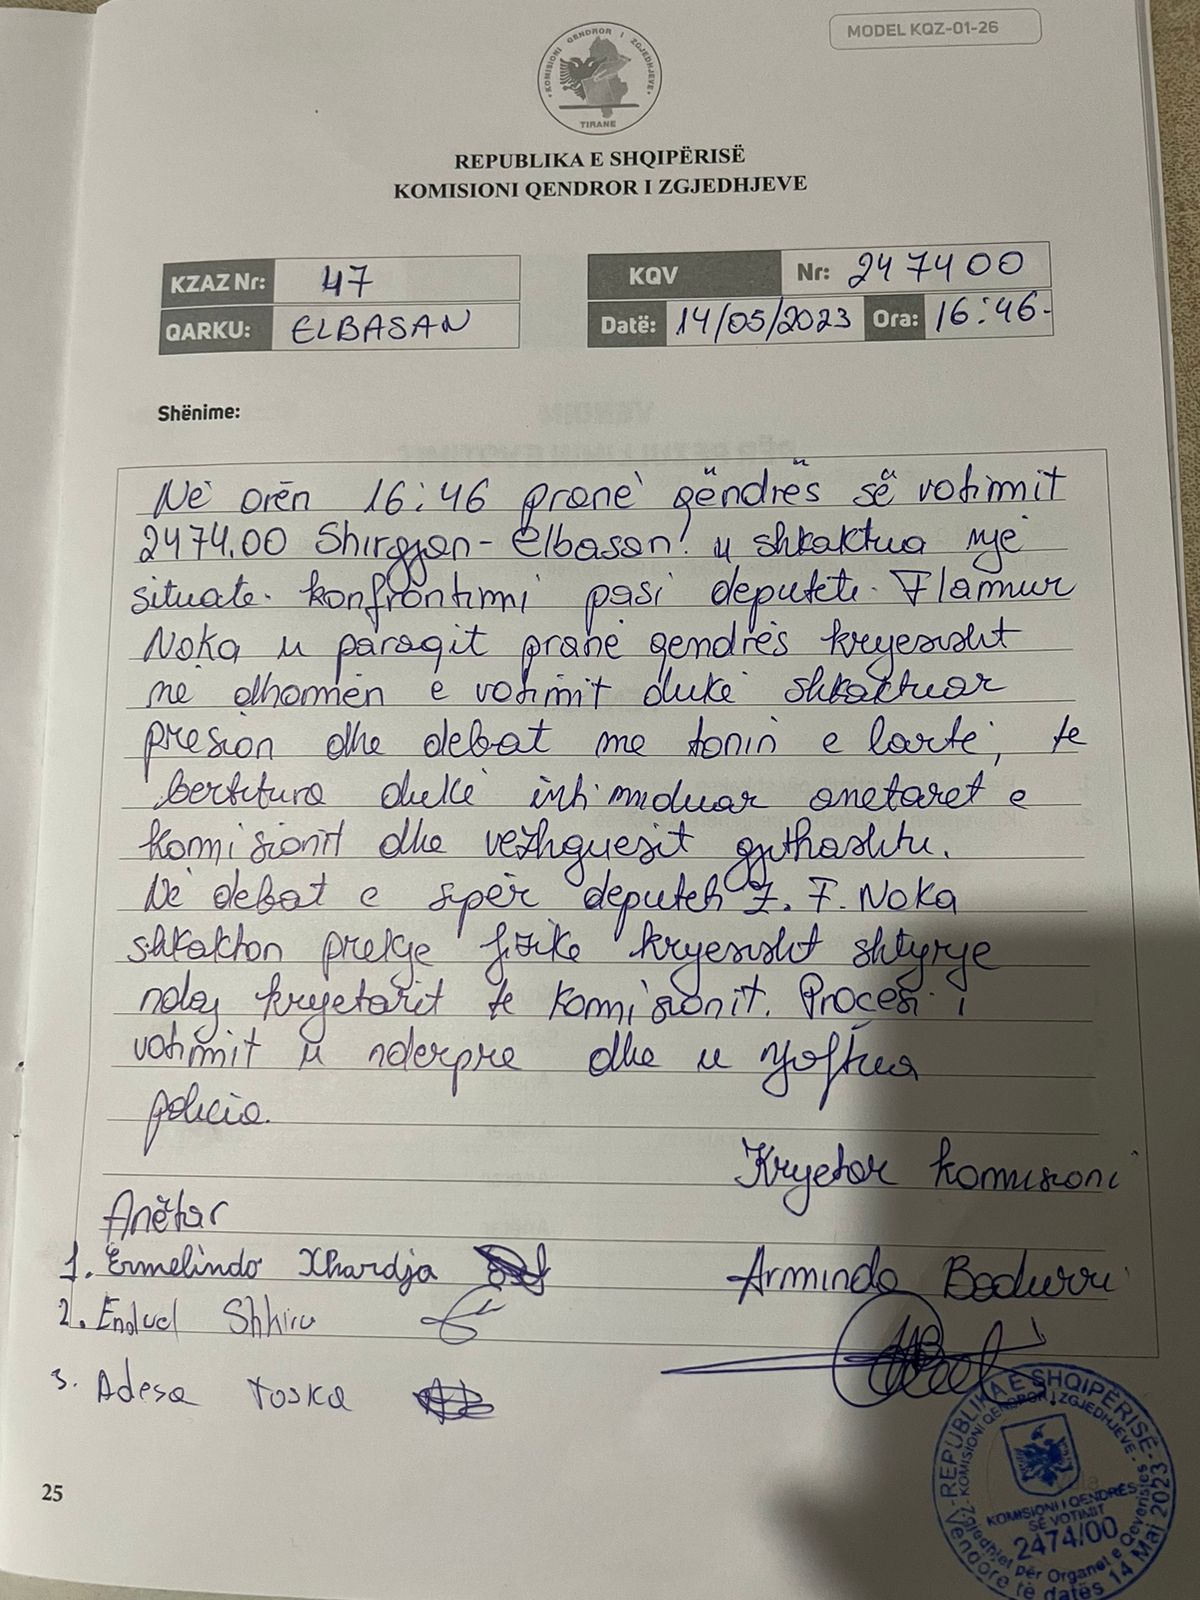 MODEL KQZ-01-26
KOMISIONI QENDROR I ZGJEDHJEVE
TIRANE
REPUBLIKA E SHQIPËRISË
KOMISIONI QENDROR I ZGJEDHJEVE
KZAZ Nr: 47
QARKU: ELBASAN
KQV Nr: 247400
Datë: 14/05/2023 Ora: 16:46.
Shënime:
Në orën 16:46 pranë qëndrës së votimit
2474.00 Shirgjan-Elbasan. u shkaktua një
situate konfrontimi pasi deputeti Flamur
Noka u paraqit pranë qendrës kryesisht
në dhomën e votimit duke shkaktuar
presion dhe debat me tonin e lartë, te
bertitura duke intimiduar anetaret e
komisionit dhe vezhguesit gjithashtu.
Në debat e sipër deputeti Z. F. Noka
shkakton prekje fizike kryesisht shtyrje
ndaj kryetarit te komisionit. Procesi i
votimit u nderpre dhe u njoftua
policia.
Kryetar komisioni
Anëtar
1. Ermelindo Xhardja
Armindo Badurri
2. Enduel Shkiru
3. Adesa Toska
25
REPUBLIKA E SHQIPËRISË
KOMISIONI QENDROR I ZGJEDHJEVE
KOMISIONI I QENDRËS
SË VOTIMIT
2474/00
Zgjedhjet për Organet e Qeverisjes
Vendore të datës 14 Maj 2023